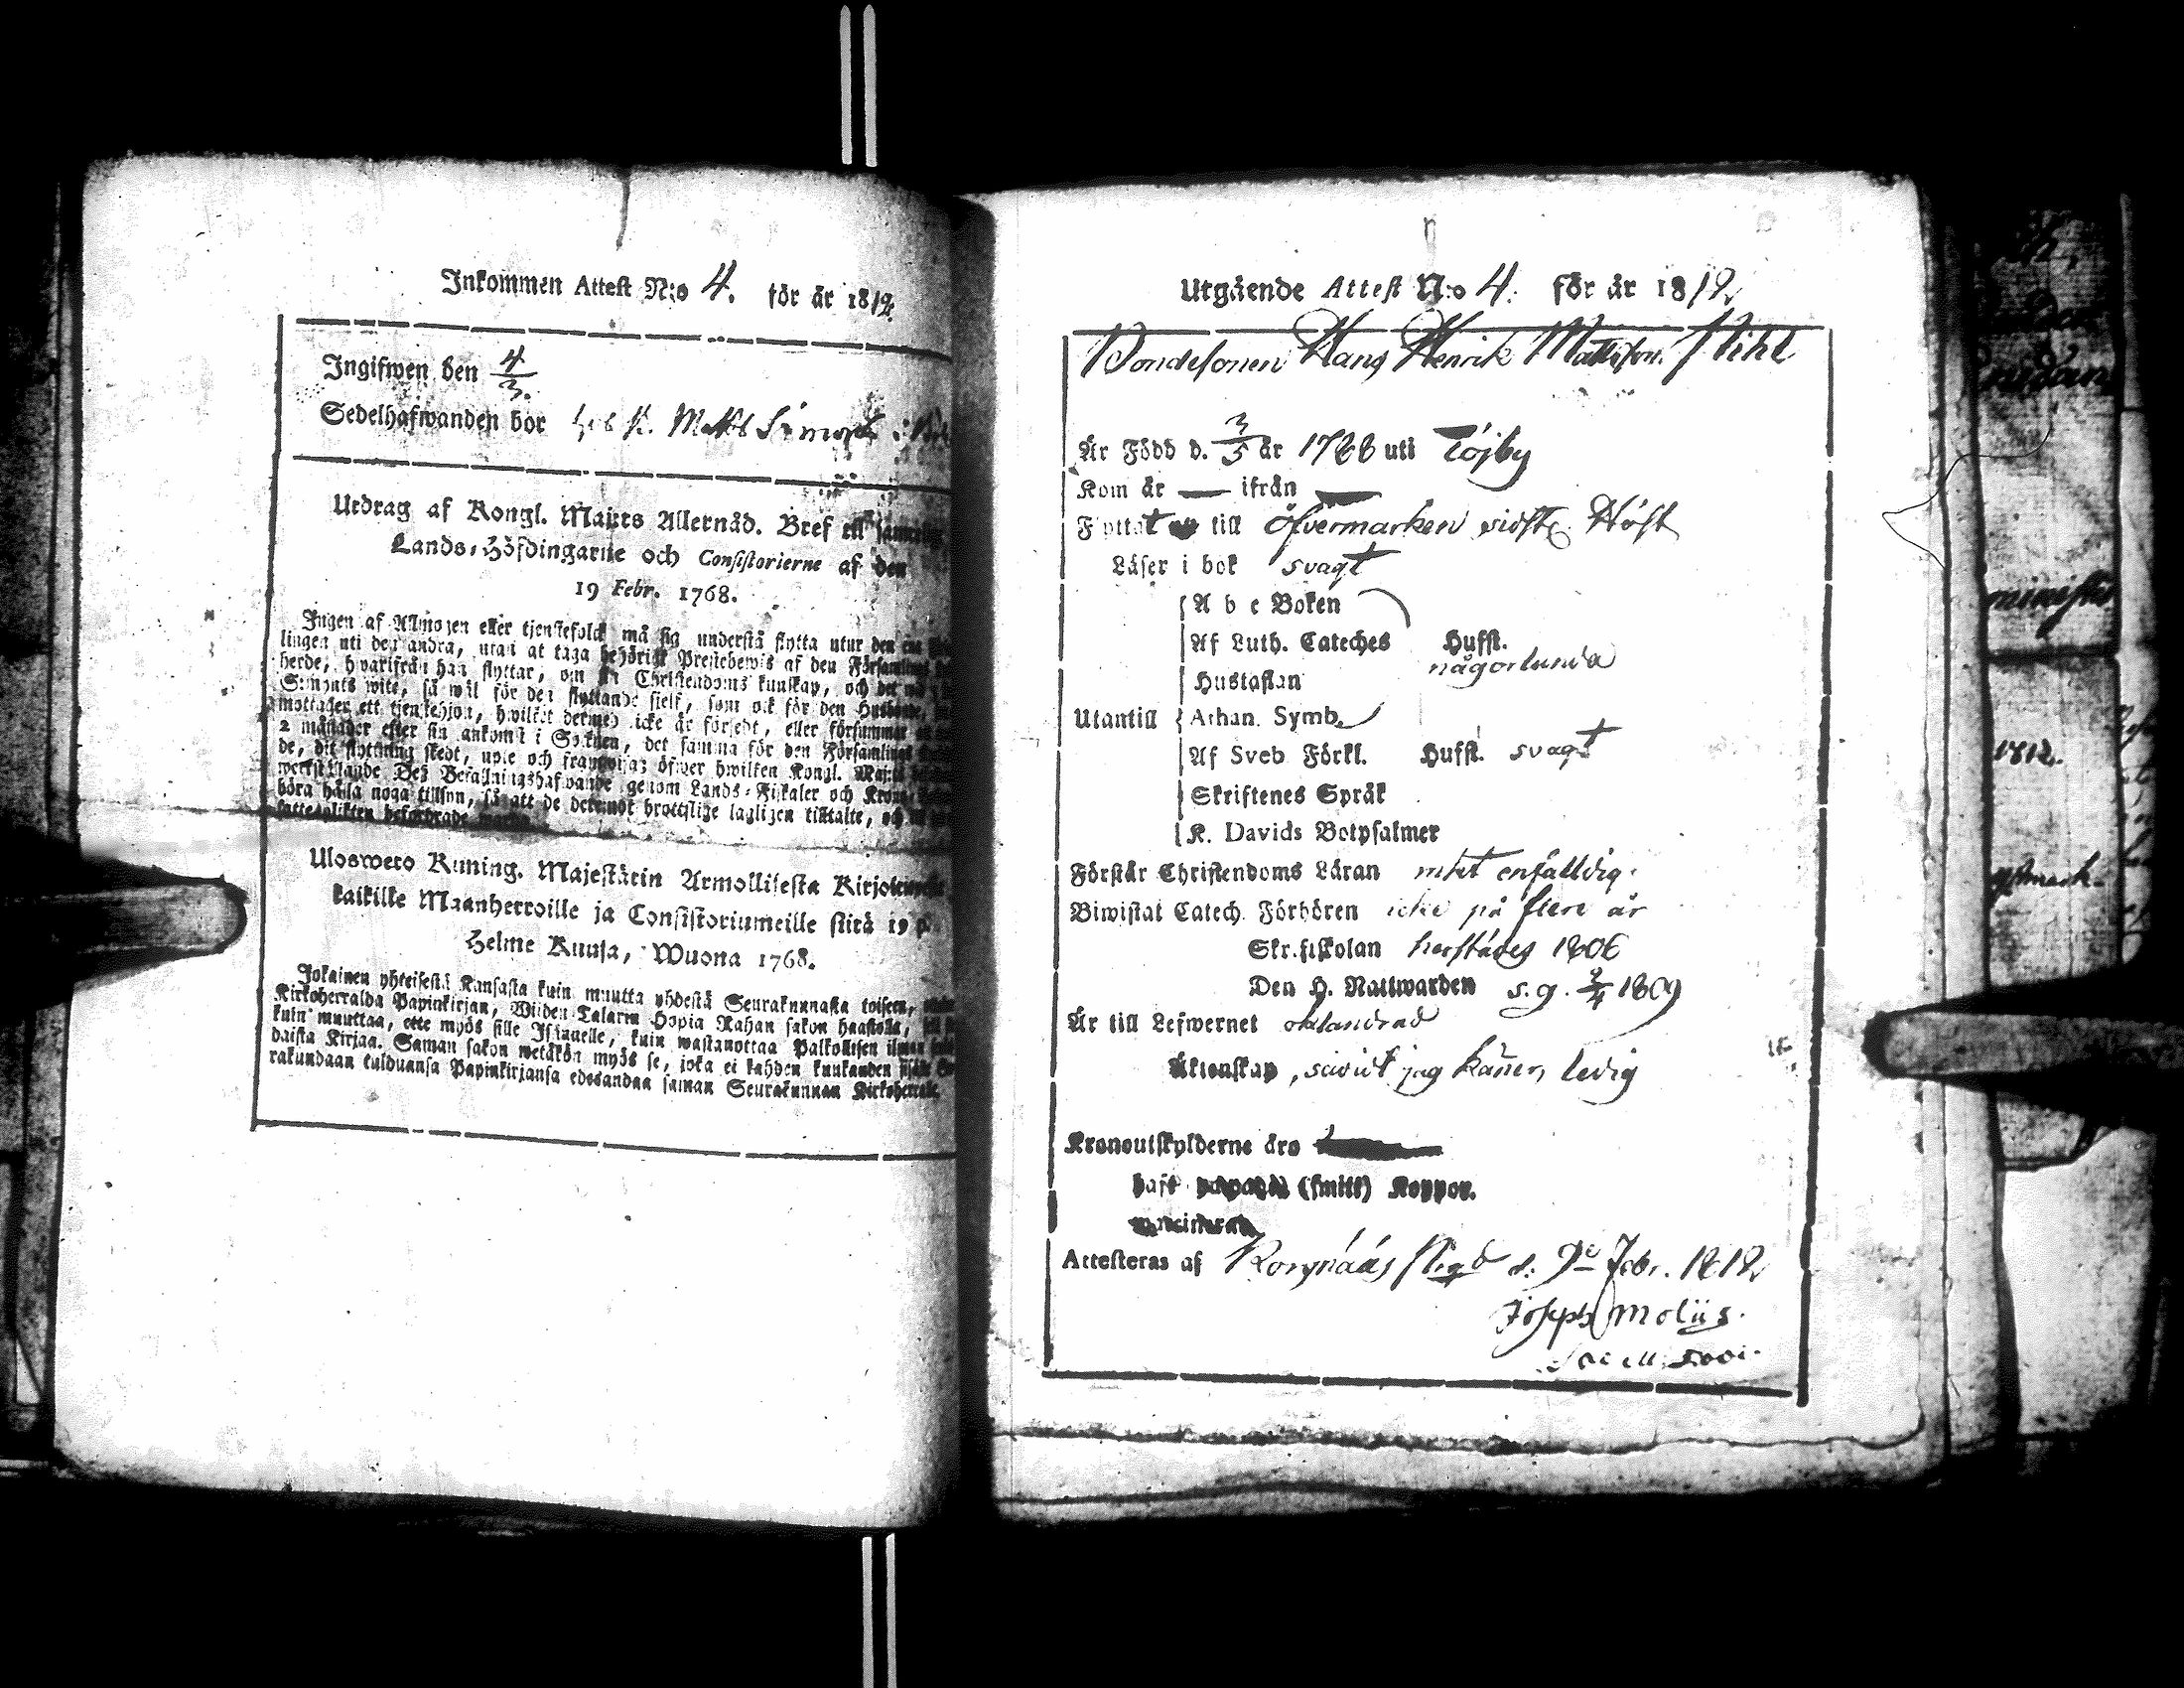 Inkommen Attest N:o 4. för år 1812.
Ingifwen den 4/3.
Sedelhafwanden bor hos K. Matts Simons
Utdrag af Kongl. Maj:ts Allernåd. Bref till samtelige
Lands-Höfdingarne och Consistorierne af den
19 Febr. 1768.
Ingen af Allmogen eller tjenstefolck må sig understå flytta utur den ena
lingen uti den andra, utan at taga behörigt Prestebewis af den Församlings
herde, hwarifrån han flyttar, om sin Christendoms kunskap, och det wid
Silf:mynts wite, så wäl för den flyttande sielf, som ock för den Husbonde,
mottager ett tjenstehjon, hwilket dermed icke är försedt, eller försummar
2 månader efter sin ankomst i Soknen, det samma för den Församlings
de, dit flyttning skedt, upte och framwisa; öfwer hwilken Kongl. Maj:ts
werkställande Des Befallningshafwande genom Lands-Fiskaler och Krono
böra hålla noga tillsyn, så att de deremot brottslige lagligen tilltalte, och
Ulosweto Kuning. Majestätin Armollisesta Kirjoituxesta
kaikille Maanherroille ja Consistoriumeille siitä 19 p.
Helme Kuusa, Wuona 1768.
Jokainen yhteisestä Kansasta kuin muutta yhdestä Seurakunnasta toiseen,
Kirkoherralda Papinkirjan, Wiiden Talarin Hopia Rahan sakon haastolla,
kuin muuttaa, ette myös sille Isännelle, kuin wastanottaa Palkollisen ilman
daista Kirjaa. Saman sakon wetäkön myös se, joka ei kahden kuukauden sisäll
rakundaan tulduansa Papinkirjansa edesandaa saman Seurakunnan Kirkoherralle.
Utgående Attest N:o 4. för år 1812.
Bondesonen Hans Henrik Mattsson
Är Född d. 3/5 år 1788 uti Töjby
Kom år — ifrån —
Flyttat till Öfvermarken sidste Höst
Läser i bok svagt
A b c Boken
Af Luth. Cateches Hufst.
någorlunda
Hustaflan
Utantill Athan. Symb.
Af Sveb Förkl. Hufst. svagt
Skriftenes Språk
K. Davids Botpsalmer
Förstår Christendoms Läran enfalldig.
Biwistat Catech. Förhören icke på flere år
Skriftskolan herstädes 1806
Den H. Nattwarden s. g. 1809
Är till Lefwernet oklandrad
Äktenskap, såvidt jag känner, ledig
Kronoutskylderne äro
haft (smitt) Koppor.
Attesteras af Korsnäås d. 9de Febr. 1812
Joseph Moliis.